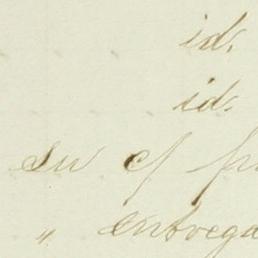 id.
id.
su c/
" entrega